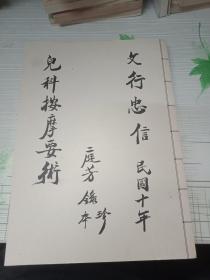 文行忠信 民國十年
兒科按摩要術
二庭芳錄本
珍